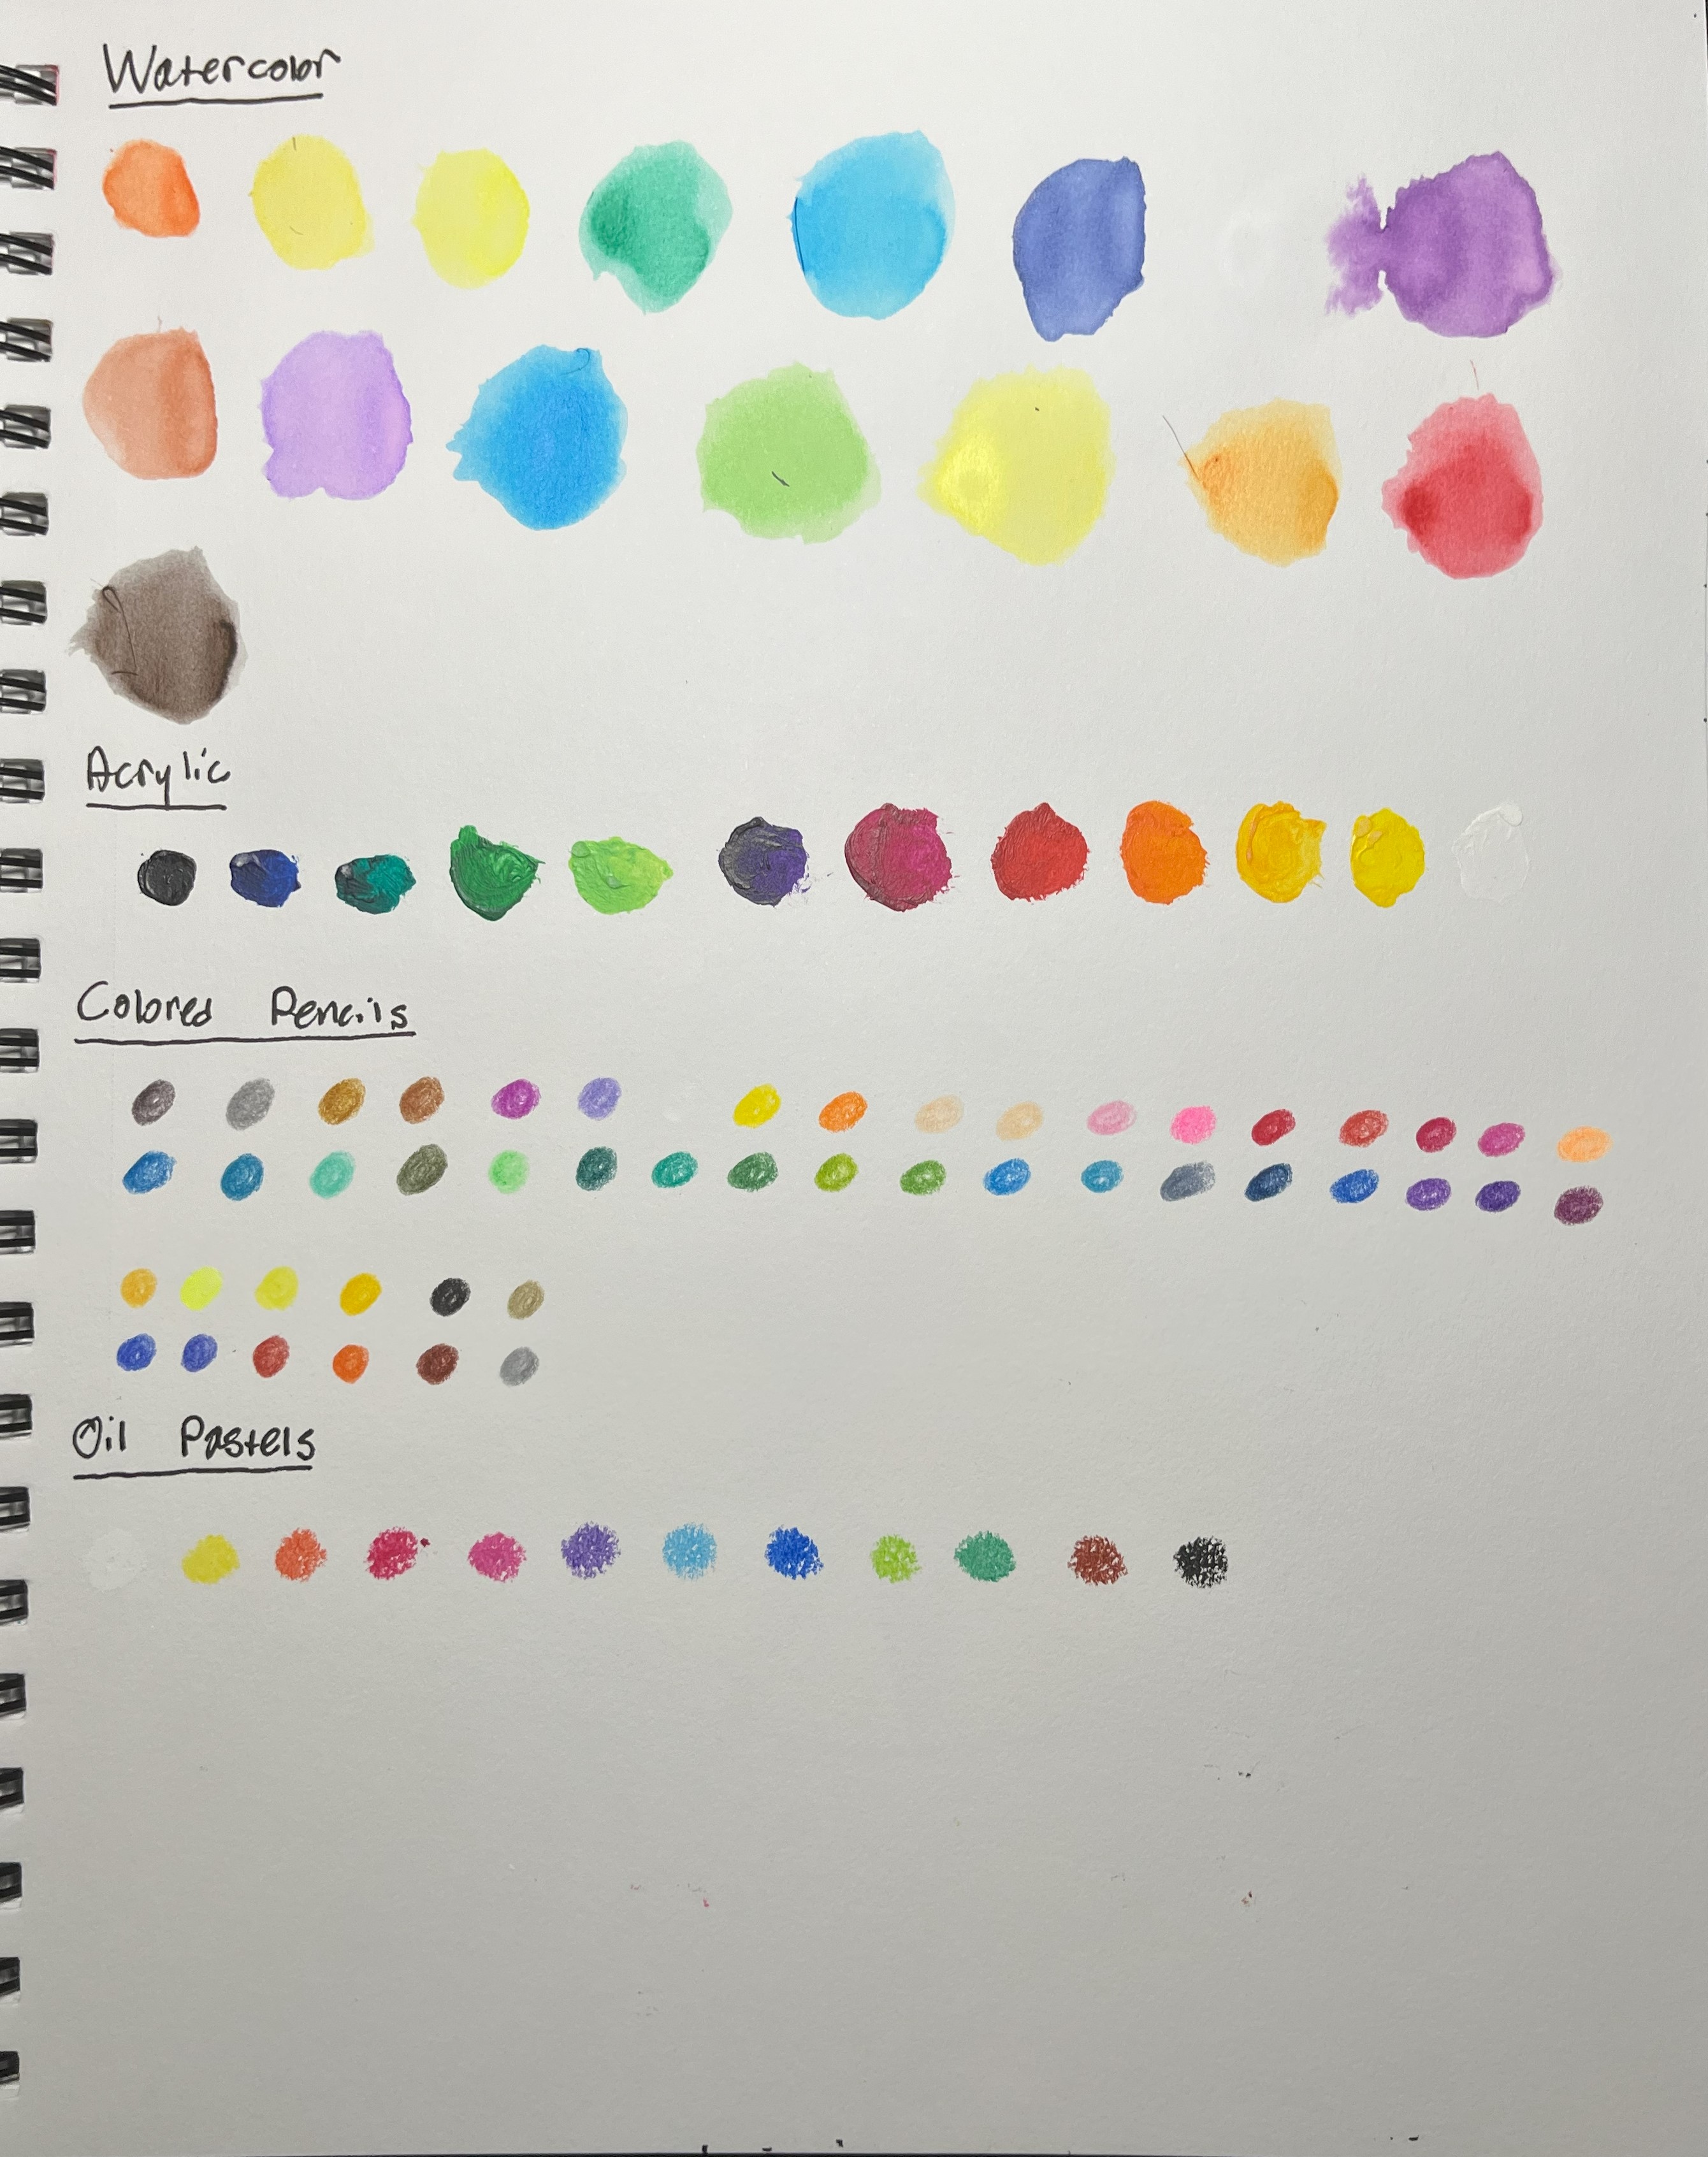 Watercolor
Acrylic
Colored Pencils
Oil Pastels